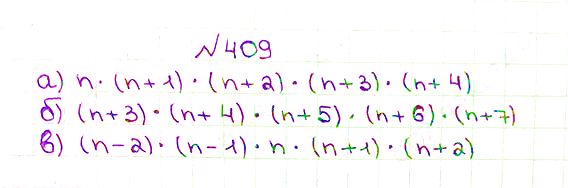 №409
а) n · (n+1) · (n+2) · (n+3) · (n+4)
б) (n+3) · (n+4) · (n+5) · (n+6) · (n+7)
в) (n-2) · (n-1) · n · (n+1) · (n+2)